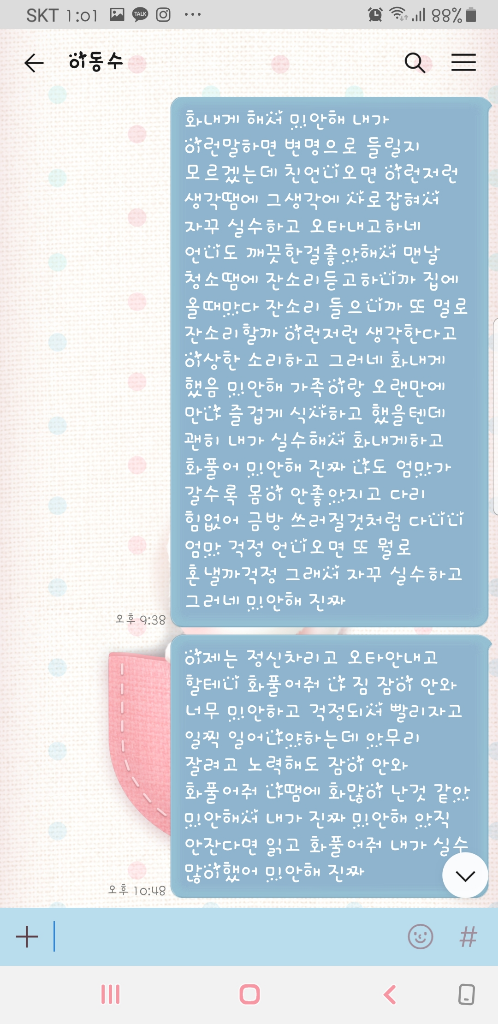 SKT 1:01 TALK ... 88%
이동수
화내게 해서 미안해 내가
이런말하면 변명으로 들릴지
모르겠는데 친언니오면 이런저런
생각땜에 그생각에 사로잡혀서
자꾸 실수하고 오타내고하네
언니도 깨끗한걸좋아해서 맨날
청소땜에 잔소리듣고하니까 집에
올때마다 잔소리 들으니까 또 멀로
잔소리할까 이런저런 생각한다고
이상한 소리하고 그러네 화내게
했음 미안해 가족이랑 오랜만에
만나 즐겁게 식사하고 했을텐데
괜히 내가 실수해서 화내게하고
화풀어 미안해 진짜 나도 엄마가
갈수록 몸이 안좋아지고 다리
힘없어 금방 쓰러질것처럼 다니니
엄마 걱정 언니오면 또 뭘로
혼낼까걱정 그래서 자꾸 실수하고
그러네 미안해 진짜
오후 9:38
이제는 정신차리고 오타안내고
할테니 화풀어줘 나 짐 잠이 안와
너무 미안하고 걱정되서 빨리자고
일찍 일어나야하는데 아무리
잘려고 노력해도 잠이 안와
화풀어줘 나땜에 화많이 난것 같아
미안해서 내가 진짜 미안해 아직
안잔다면 읽고 화풀어줘 내가 실수
많이했어 미안해 진짜
오후 10:48
#